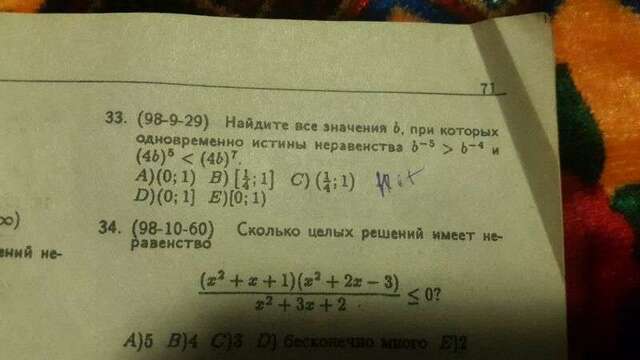 71
33. (98-9-29) Найдите все значения b, при которых
одновременно истины неравенства b⁻⁵ > b⁻⁴ и
(4b)⁵ < (4b)⁷.
A)(0; 1) B) [1/4; 1] C) (1/4; 1)
D)(0; 1] E)[0; 1)
∞)
ений не-
34. (98-10-60) Сколько целых решений имеет не-
равенство
(x² + x + 1)(x² + 2x − 3)
x² + 3x + 2
≤ 0?
A)5 B)4 C)3 D) бесконечно много E)2